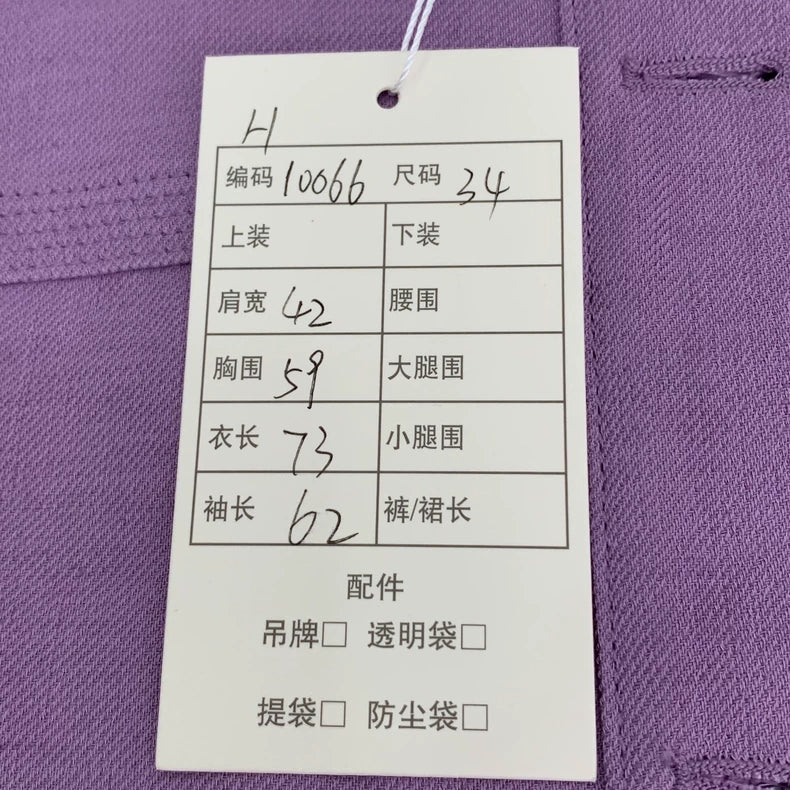 H
编码 10066 尺码 34
上装 下装
肩宽 42 腰围
胸围 59 大腿围
衣长 73 小腿围
袖长 62 裤/裙长
配件
吊牌□ 透明袋□
提袋□ 防尘袋□